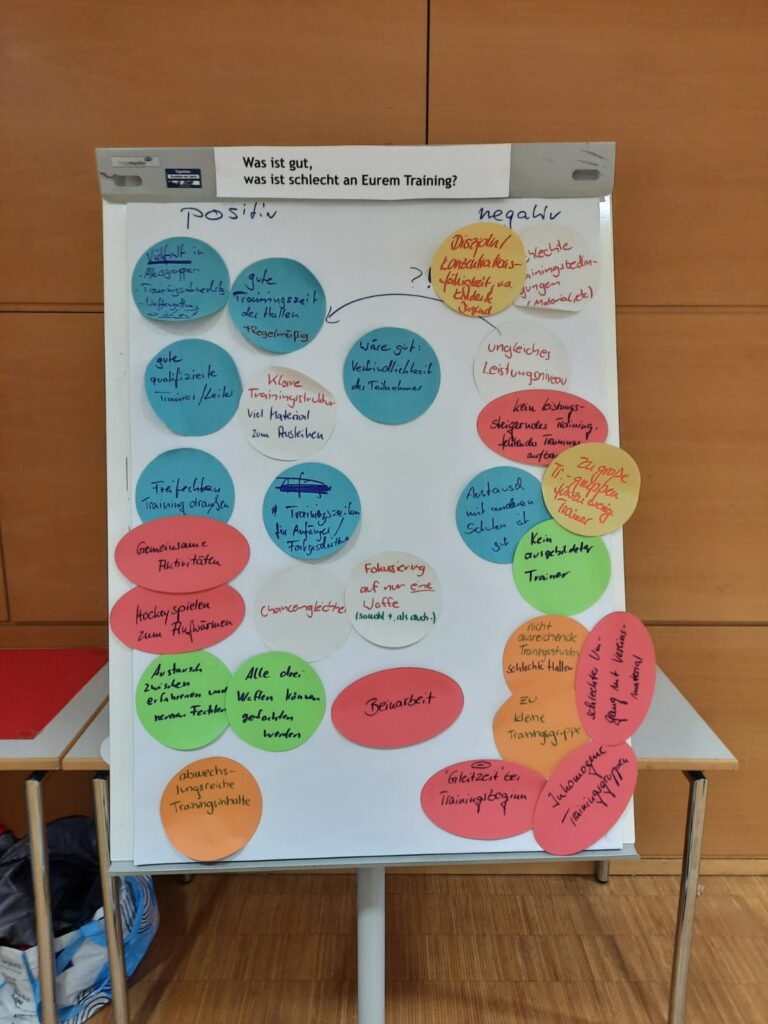 Was ist gut,
was ist schlecht an Eurem Training?
positiv
negativ
Vielfalt in
- Altersgruppen
gute
Trainingszeit
der Hallen
+ Regelmäßig
?!
Disziplin/
Konzentrations-
fähigkeit v.a.
Jugend
ungleiches
Leistungsniveau
gute
qualifizierte
Trainer/Leiter
Klare
Trainingsstruktur
viel Material
zum Ausleihen
Wäre gut:
Verbindlichkeit
der Teilnehmer
kein leistungs-
steigerndes Training,
fehlender Trainings
aufbau
zu große
Tr.-gruppen
für zu wenig
Trainer
Freifechten
Training draußen
# Trainingszeiten
für Anfänger/
Fortgeschrittene
Austausch
mit anderen
Schulen ist
gut
Kein
ausgebildeter
Trainer
Gemeinsame
Aktivitäten
Hockeyspielen
zum Aufwärmen
Chancengleichhei
Fokussierung
auf nur eine
Waffe
(sowohl +, als auch -)
nicht
ausreichende
Trainingsstunden
schlechte Hallen
schlechter Um-
gang mit Vereins-
material
Austausch
zwischen
erfahrenen und
neueren Fechtern
Alle drei
Waffen können
gefochten
werden
Beinarbeit
zu
kleine
Trainingsgruppe
abwechs-
lungsreiche
Trainingsinhalte
"Gleitzeit" bei
Trainingsbeginn
Inhomogene
Trainingsgruppen